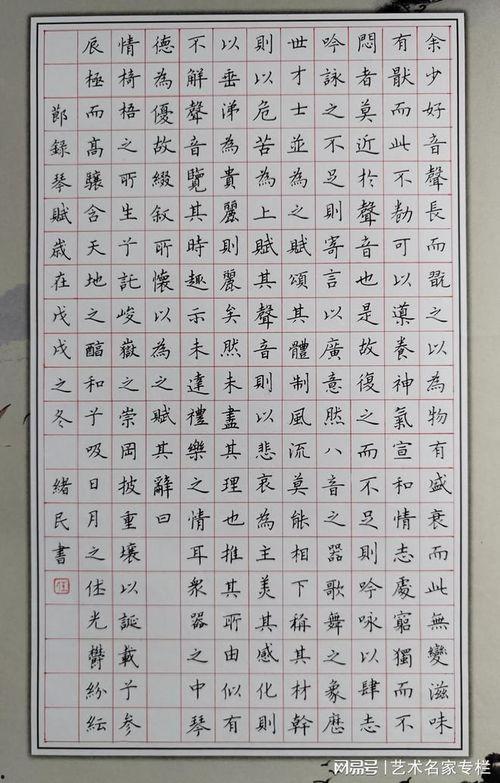 余少好音聲長而翫之以為物有盛衰而此無變滋味
有猒而此不勌可以導養神氣宣和情志處窮獨而不
悶者莫近於聲音也是故復之而不足則吟咏以肆志
吟詠之不足則寄言以廣意然八音之器歌舞之象歷
世才士並為之賦頌其體制風流莫能相下稱其材幹
則以危苦為上賦其聲音則以悲哀為主美其感化則
以垂涕為貴麗則麗矣然未盡其理也推其所由似有
不解聲音覽其時趣示未達禮樂之情耳衆器之中琴
德為優故綴叙所懷以為之賦其辭曰
情椅梧之所生兮託峻嶽之崇岡披重壤以誕載兮參
辰極而高驤含天地之醇和兮吸日月之休光鬱紛紜
節錄琴賦歲在戊戌之冬 緒民書
网易号 | 艺术名家专栏